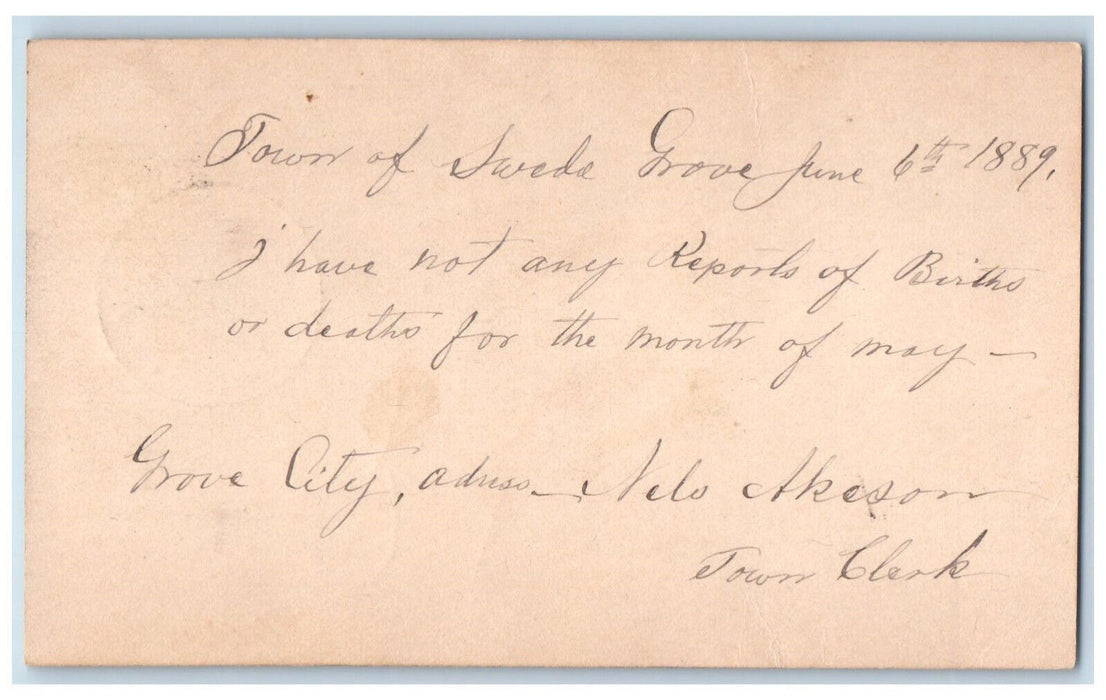 Town of Swede Grove June 6th 1889.
I have not any Reports of Births
or deaths for the month of may —
Grove City, adress — Nels Akeson
Town Clerk